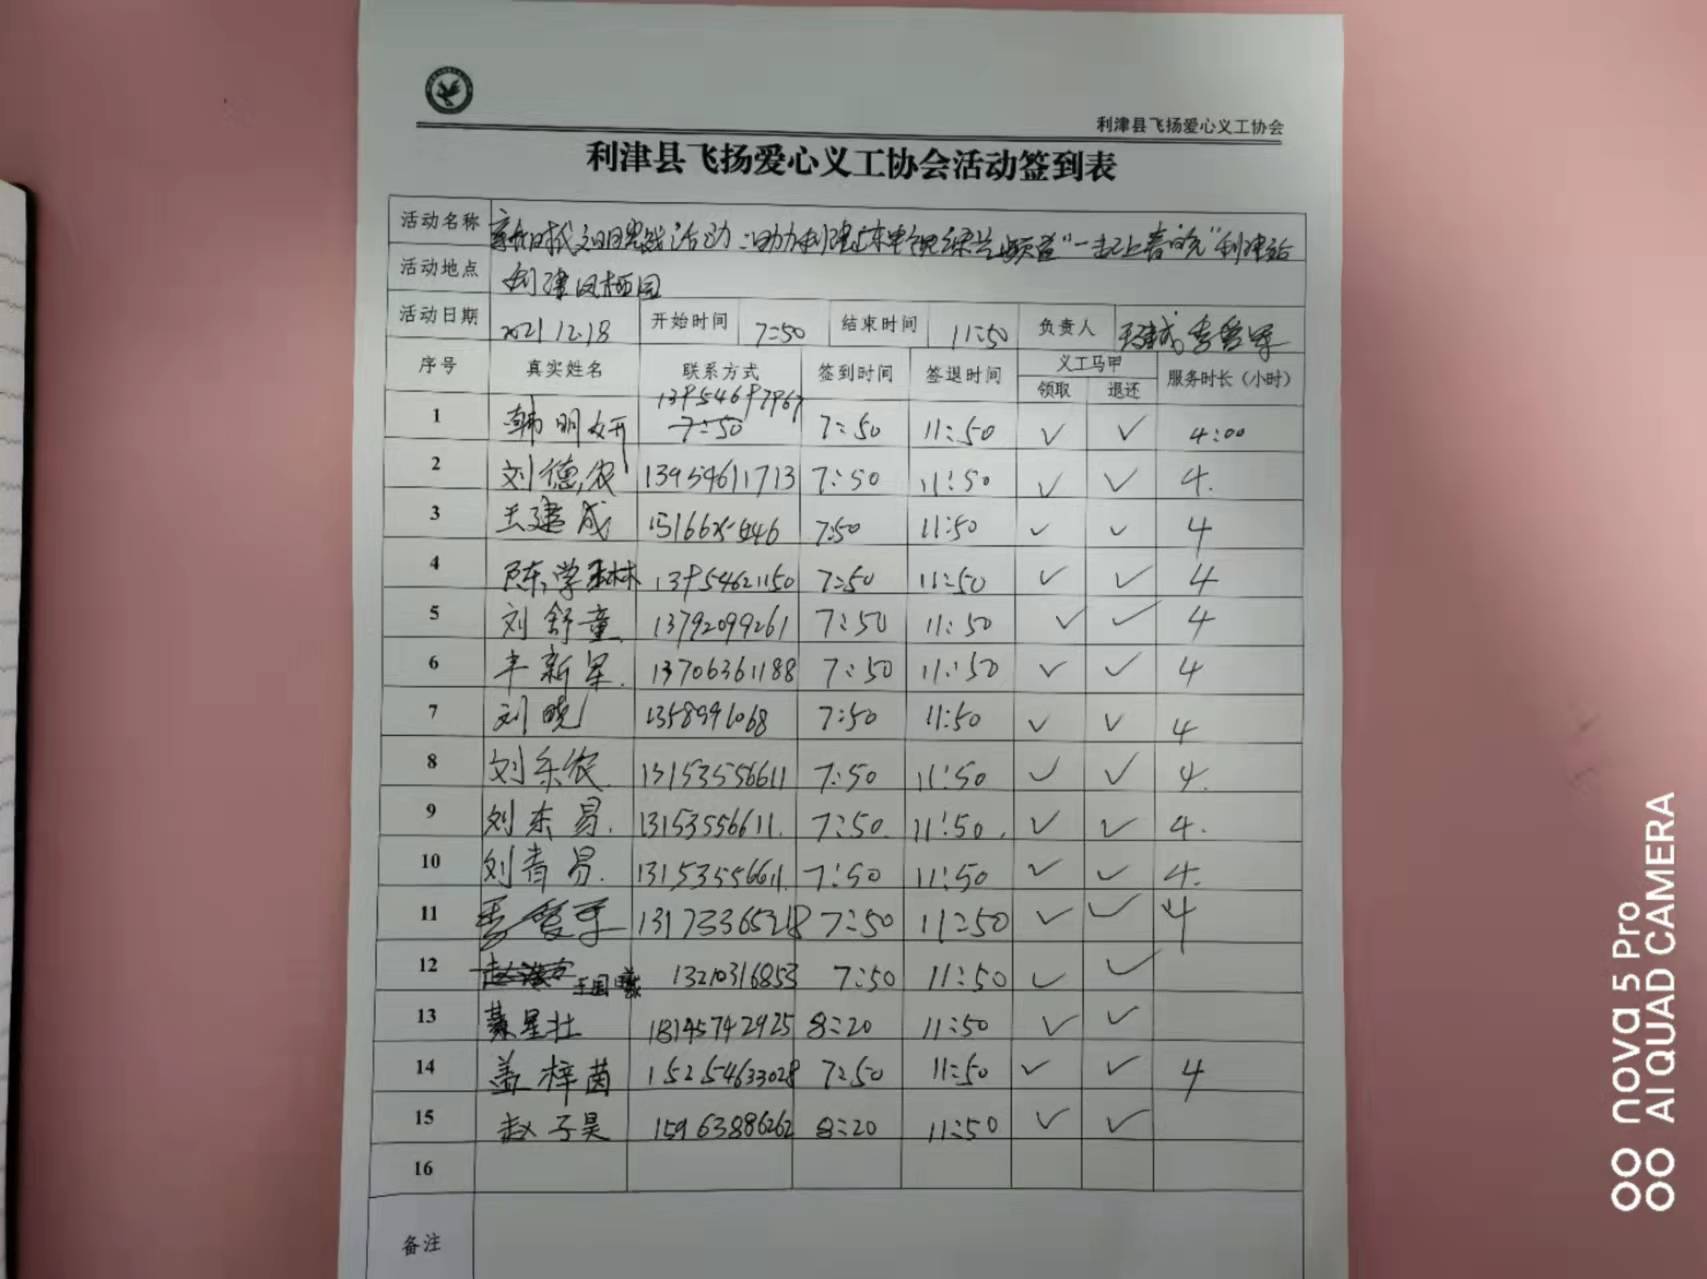 利津县飞扬爱心义工协会
利津县飞扬爱心义工协会活动签到表
活动名称 新时代文明实践活动:助力利津 "一起上春晚"利津站
活动地点 利津凤栖园
活动日期 2021.12.18 开始时间 7:50 结束时间 11:50 负责人 王建成
序号 真实姓名 联系方式 签到时间 签退时间 义工马甲 服务时长(小时)
领取 退还
1 韩明妍 7:50 7:50 11:50 ✓ ✓ 4:00
2 刘德农 13954611713 7:50 11:50 ✓ ✓ 4.
3 王建成 7:50 11:50 ✓ ✓ 4
4 陈学彬 13954621150 7:50 11:50 ✓ ✓ 4
5 刘舒童 13792099261 7:50 11:50 ✓ ✓ 4
6 丰新星. 13706361188 7:50 11:50 ✓ ✓ 4
7 刘晓 1358991068 7:50 11:50 ✓ ✓ 4
8 刘乐农 13153556611 7:50 11:50 ✓ ✓ 4.
9 刘东易. 13153556611. 7:50. 11:50. ✓ ✓ 4.
10 刘青易. 13153556611. 7:50 11:50 ✓ ✓ 4.
11 13173365218 7:50 11:50 ✓ ✓ 4
12 王国 13210316853 7:50 11:50 ✓ ✓
13 綦星壮 18145742925 8:20 11:50 ✓ ✓
14 盖梓茵 15254633028 7:50 11:50 ✓ ✓ 4
15 赵子昊 15963886262 8:20 11:50 ✓ ✓
16
备注
nova 5 Pro
AI QUAD CAMERA